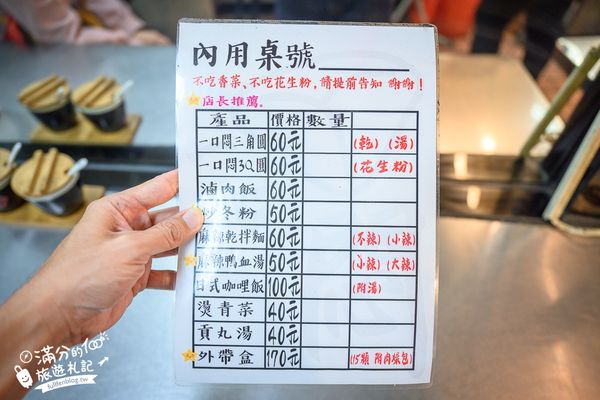 內用桌號
不吃香菜、不吃花生粉，請提前告知 謝謝！
店長推薦。
產品 價格 數量
一口悶三角圓 60元 (乾) (湯)
一口悶3Q圓 60元 (花生粉)
滷肉飯 60元
炒冬粉 50元
麻辣乾拌麵 60元 (不辣) (小辣)
麻辣鴨血湯 50元 (小辣) (大辣)
日式咖哩飯 100元 (附湯)
燙青菜 40元
貢丸湯 40元
外帶盒 170元 (15顆 附肉燥包)
滿分的
旅遊札記
fullfenblog.tw